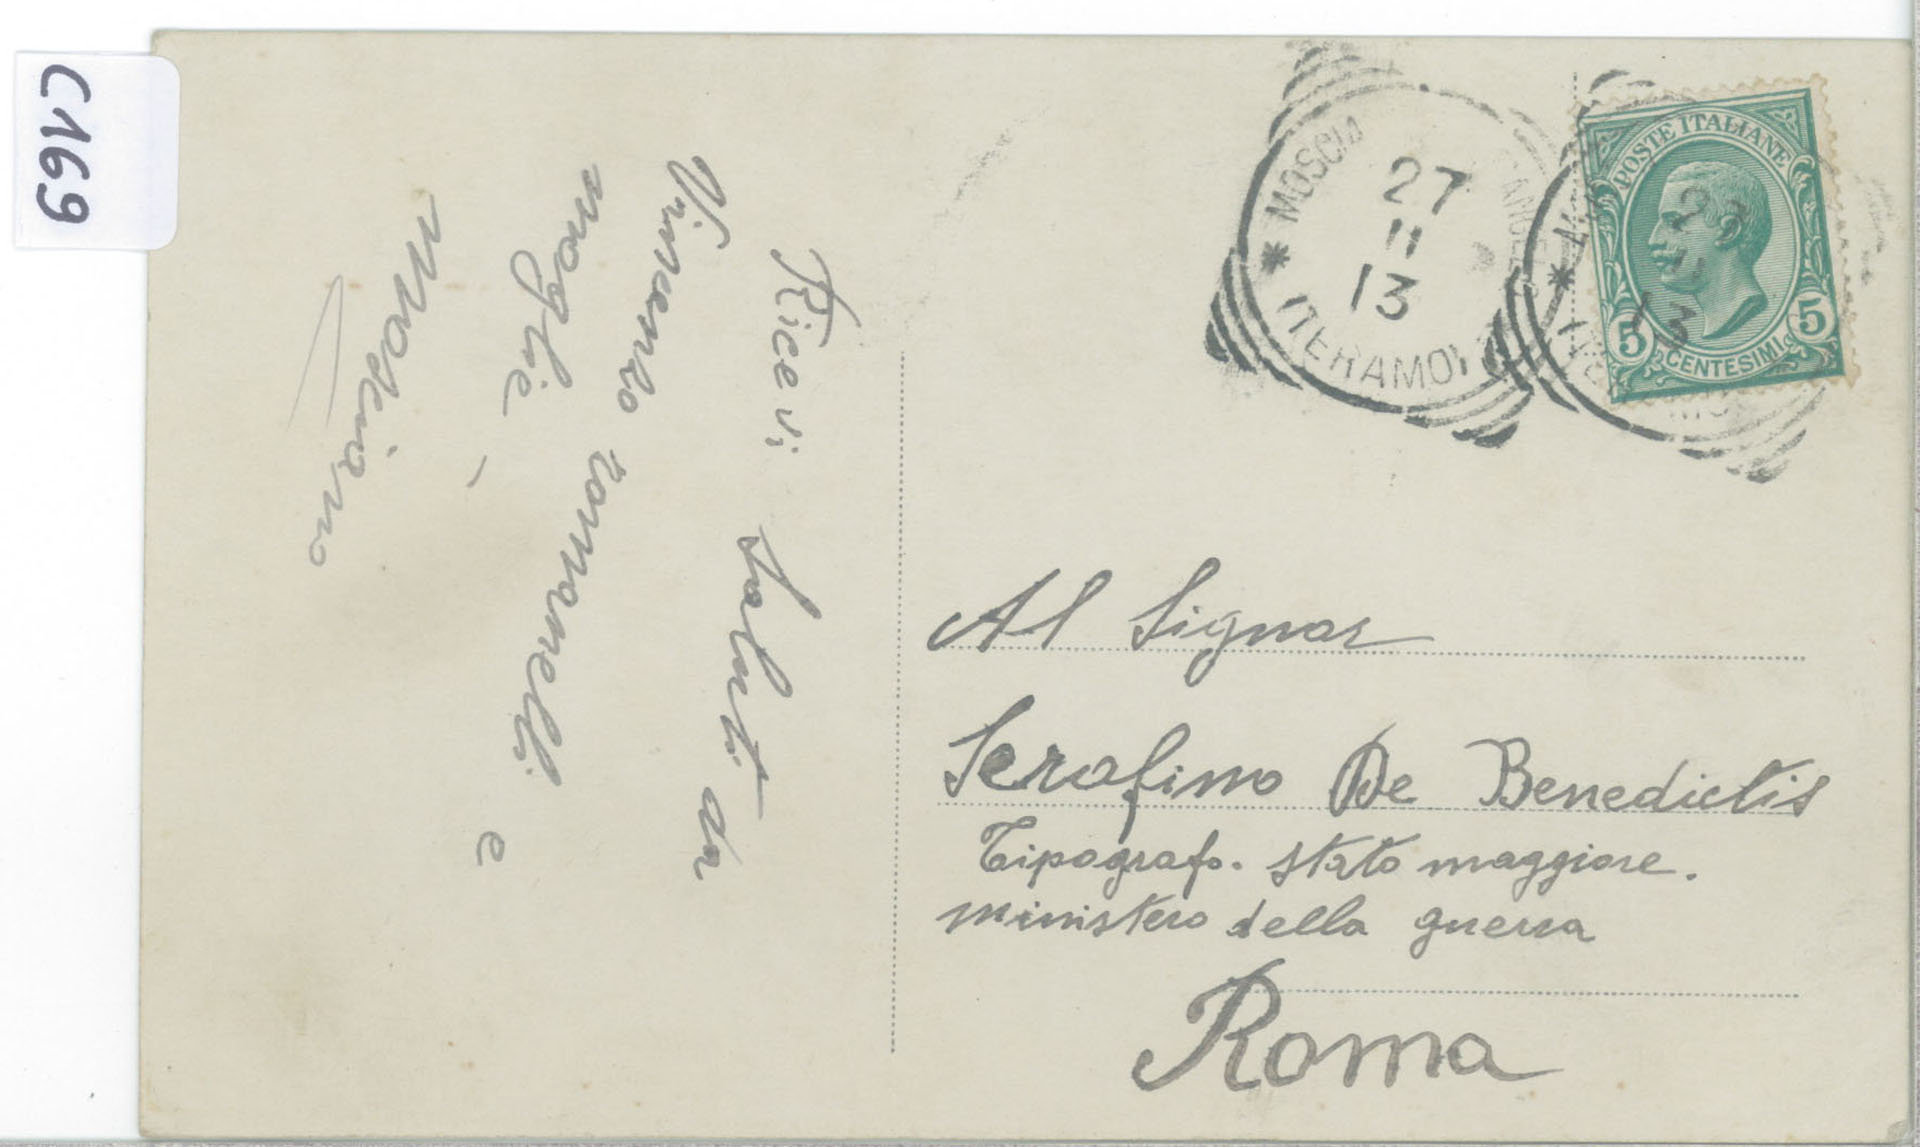 C169
Ricevi saluti da
Vincenzo Romanelli e
moglie –
Mosciano
MOSCIA
27
11
13
(TERAMO)
POSTE ITALIANE
5 5
CENTESIMI
27
11
13
Al Signor
Serafino De Benedictis
Tipografo. Stato maggiore.
ministero della guerra
Roma